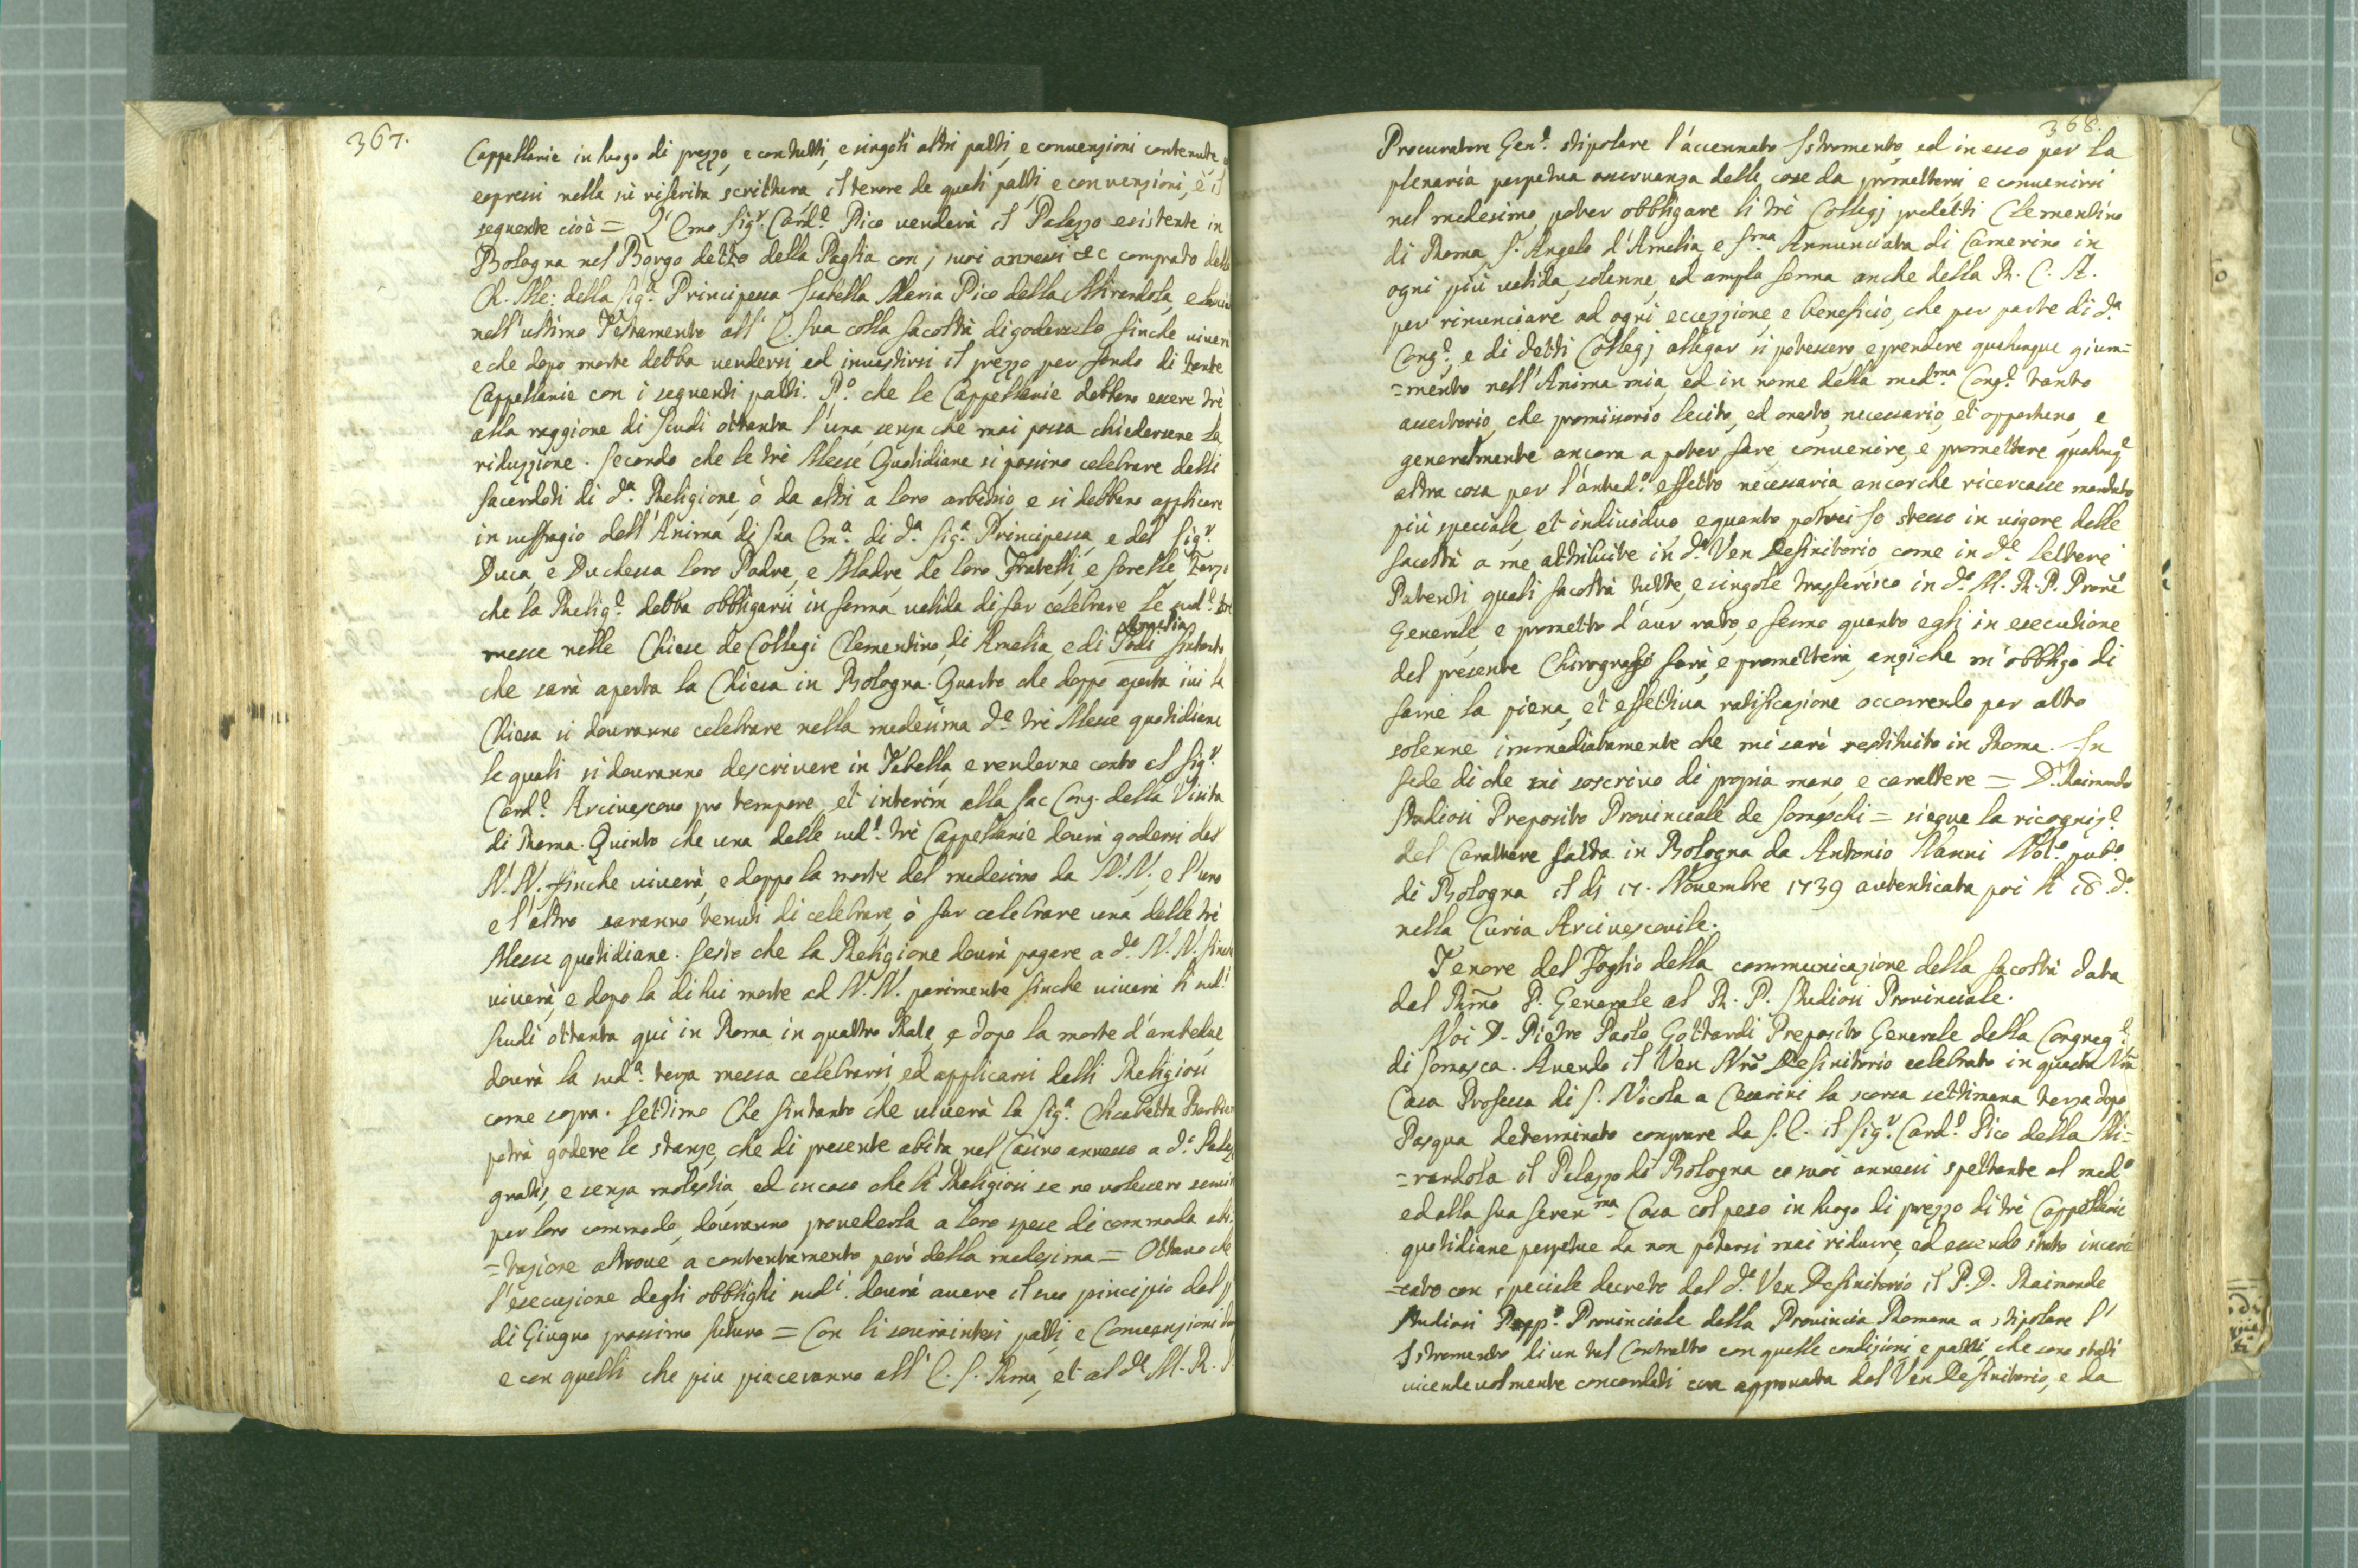 367.
Cappellanie in luogo di prezzo, e con tutti, e singoli altri patti, e convenzioni contenute
espressi nella sù riferita scrittura, il tenore de quali patti, e convenzioni, è il
seguente cioè = L'Emo Sig.r Card.e Pico venderà il Palazzo esistente in
Bologna nel Borgo detto della Paglia con i suoi annessi &c comprato dalla
Ch. Me: della Sig.a Principessa Isabella Maria Pico della Mirandola, e
nell'ultimo Testamento all'E. Sua colla facoltà di goderselo finche
e che dopo morte debba vendersi, ed investirsi il prezzo per fondo di tante
Cappellanie con i seguenti patti. P.o che le Cappellanie debbano essere trè
alla raggione di Scudi ottanta l'una, senza che mai possa chiedersene la
riduzzione. Secondo che le trè Messe Quotidiane si possino celebrare dalli
Sacerdoti di d.a Religione, ò da altri a loro arbitrio, e si debbano applicare
in suffragio dell'Anima di Sua Em.a di d.a Sig.a Principessa, e del Sig.r
Duca, e Duchessa loro Padre, e Madre, de loro Fratelli, e Sorelle Terzo
che la Relig.e debba obbligarsi in forma valida di far celebrare le sud.e trè
messe nelle Chiese de Collegi Clementino, di Amelia, e di Todi Amelia sintanto
che sarà aperta la Chiesa in Bologna. Quarto che doppo aperta ivi la
Chiesa si dovranno celebrare nella medesima d.e trè Messe quotidiane
le quali si dovranno descrivere in Tabella, e renderne conto al Sig.r
Card.e Arcivescovo pro tempore, et interim alla Sac Cong. della Visita
di Roma. Quinto che una delle sud.e trè Cappellanie dovrà godersi dal
N.N. finche viverà, e doppo la morte del medesimo da N.N., e l'uno
e l'altro saranno tenuti di celebrare, ò far celebrare una delle trè
Messe quotidiane. Sesto che la Religione dovrà pagare a d.o N.N. finche
viverà, e dopo la di lui morte ad N.N. parimente finche viverà li sud.i
Scudi ottanta qui in Roma in quattro Rate, e dopo la morte d'ambedue
dovrà la sud.a terza messa celebrarsi, ed applicarsi dalli Religiosi
come sopra. Settimo Che sintanto che viverà la Sig.a Elisabetta
potrà godere le stanze, che di presente abita nel Casino annesso a d.o
gratis, e senza molestia, ed in caso che li Religiosi se ne volessero
per loro commodo, dovranno provederla a loro spese di commoda abi=
=tazione altrove a contentamento però della medesima = Ottavo che
l'esecuzione degli obblighi sud.i dovrà avere il suo principio dal p
di Giugno prossimo futuro = Con li sovraintesi patti, e Convenzioni
e con quelli che piu piaceranno all'E. S. Rma, et al d.o M. R. P.
368.
Procuratore Gen.e stipolare l'accennato Istromento, ed in esso per la
plenaria perpetua osservanza delle cose da promettersi e convenirsi
nel medesimo poter obbligare li trè Collegj predetti Clementino
di Roma, S. Angelo d'Amelia, e S.ma Annunciata di Camerino in
ogni più valida, solenne, ed ampla forma anche della R. C. A.
per rinunciare ad ogni eccezzione, e beneficio, che per parte di d.a
Cong.e, e di detti Collegj allegar si potessero, e prendere qualunque giura=
=mento nell'Anima mia, ed in nome della med.ma Cong.e tanto
assertorio, che promissorio lecito, ed onesto, necessario, et opportuno, e
generalmente ancora a poter fare convenire, e promettere qualunq.e
altra cosa per l'anted.o effetto necessaria, ancorche ricercasse mandato
più speciale, et individuo, e quanto potrei Io stesso in vigore delle
facoltà a me attribuite in d.o Ven Definitorio, come in d.e Lettere
Patenti quali facoltà tutte, e singole trasferisco in d.o M. R. P. Proc.re
Generale, e prometto d'aver rato, e fermo quanto egli in esecutione
del presente Chirografo farà, e prometterà, anziche m'obbligo di
farne la piena, et effettiva ratificazione occorrendo per atto
solenne immediatamente che mi sarò restituito in Roma. In
fede di che mi soscrivo di propria mano, e carattere = D. Raimondo
Studiosi Preposito Provinciale de Somaschi = siegue la ricogniz.e
del Carattere fatta in Bologna da Antonio Nanni Not.o pub.o
di Bologna il dì 17. Novembre 1739 autenticata poi li 18 d.o
nella Curia Arcivescovile.
Tenore del Foglio della communicazione della facoltà data
dal Rmo P. Generale al R. P. Studiosi Provinciale.
Noi D. Pietro Paolo Gottardi Preposito Generale della Congreg.e
di Somasca. Avendo il Ven Nro Definitorio celebrato in questa Nra
Casa Professa di S. Nicola a Cesarini la scorsa settimana terza dopo
Pasqua determinato comprare da S. E. il Sig.r Card.e Pico della Mi=
=randola il Palazzo di Bologna co suoi annessi spettante al med.o
ed alla sua Seren.ma Casa col peso in luogo di prezzo di trè Cappellanie
quotidiane perpetue da non potersi mai ridurre, ed essendo stato incari=
=cato con speciale decreto dal d.o Ven Definitorio il P. D. Raimondo
Studiosi Prep.o Provinciale della Provincia Romana a stipolare l'
Istromento di un tal Contratto con quelle condizioni, e patti, che sono stati
vicendevolmente concordati con approvata dal Ven Definitorio, e da